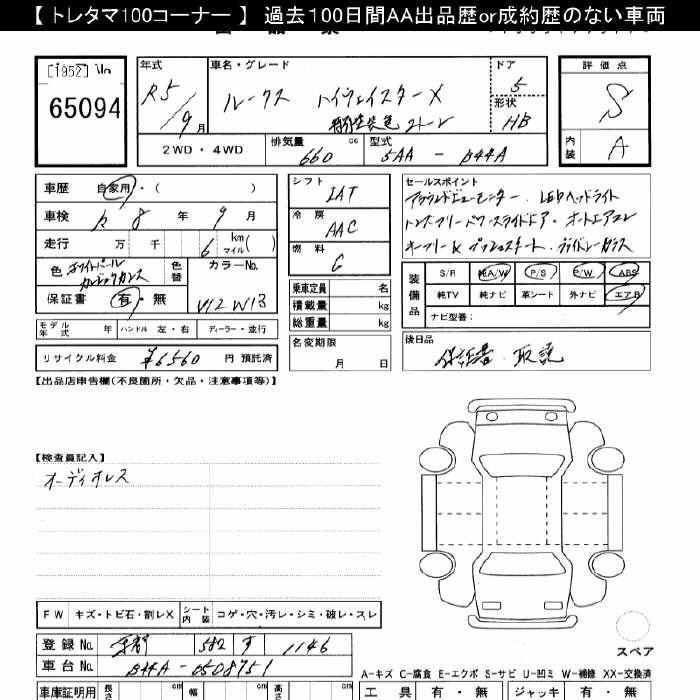 【 トレタマ100コーナー 】 過去100日間AA出品歴or成約歴のない車両
[1952] No
65094
年式 R5/9月
車名・グレード ルークス ハイウェイスターX 特別塗装色 2トーン
ドア 5
形状 HB
評価点 S
内装 A
2WD・4WD
排気量 660 cc
型式 5AA - B44A
車歴 自家用・( )
車検 R 8 年 9 月
走行 万 千 6 km マイル ( )
色 ホワイトパール
色替
カラーNo.
保証書 有・無
モデル年式 年 ハンドル 左・右 ディーラー・並行
リサイクル料金 ¥6560 円 預託済
シフト IAT
冷房 AAC
燃料 G
乗車定員 名
積載量 kg
総重量 kg
名変期限 月 日
セールスポイント
アラウンドビューモニター・LEDヘッドライト
ハンズフリードアスライドドア・オートエアコン
キーフリー& プッシュスタート・プライバシーガラス
装備品
S/R 純A/W P/S P/W ABS
純TV 純ナビ 革シート 外ナビ エアB
ナビ型番:
後日品 保証書・取説
【出品店申告欄(不良箇所・欠品・注意事項等)】
【検査員記入】
オーディオレス
FW キズ・トビ石・割レX シート内装 コゲ・穴・汚レ・シミ・破レ・スレ
登録No. 京都 582 す 1146
車台No. B44A-0508751
スペア
A-キズ C-腐食 E-エクボ S-サビ U-凹ミ W-補修 XX-交換済
車庫証明用 長さ cm 幅 cm 高さ cm
工具 有・無 ジャッキ 有・無